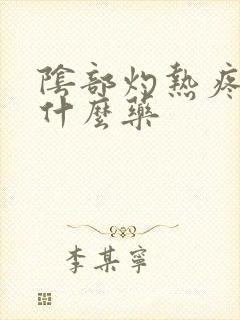 陰部灼熱疼
什麼藥
李某寧